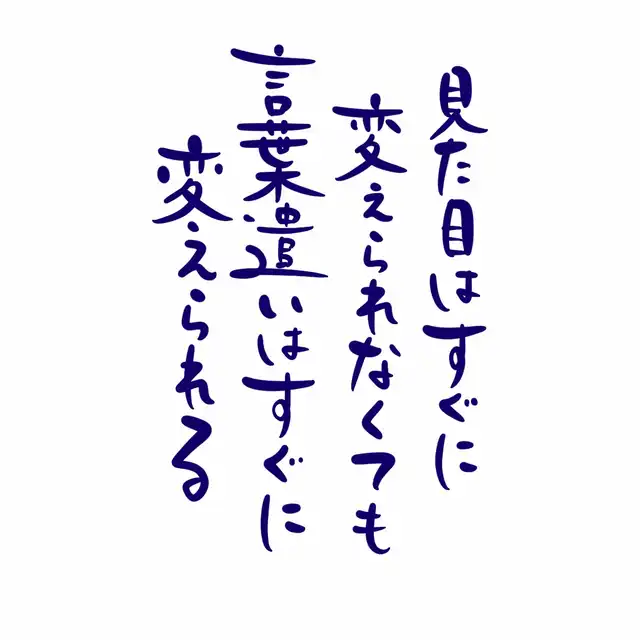 見た目はすぐに
変えられなくても
言葉遣いはすぐに
変えられる